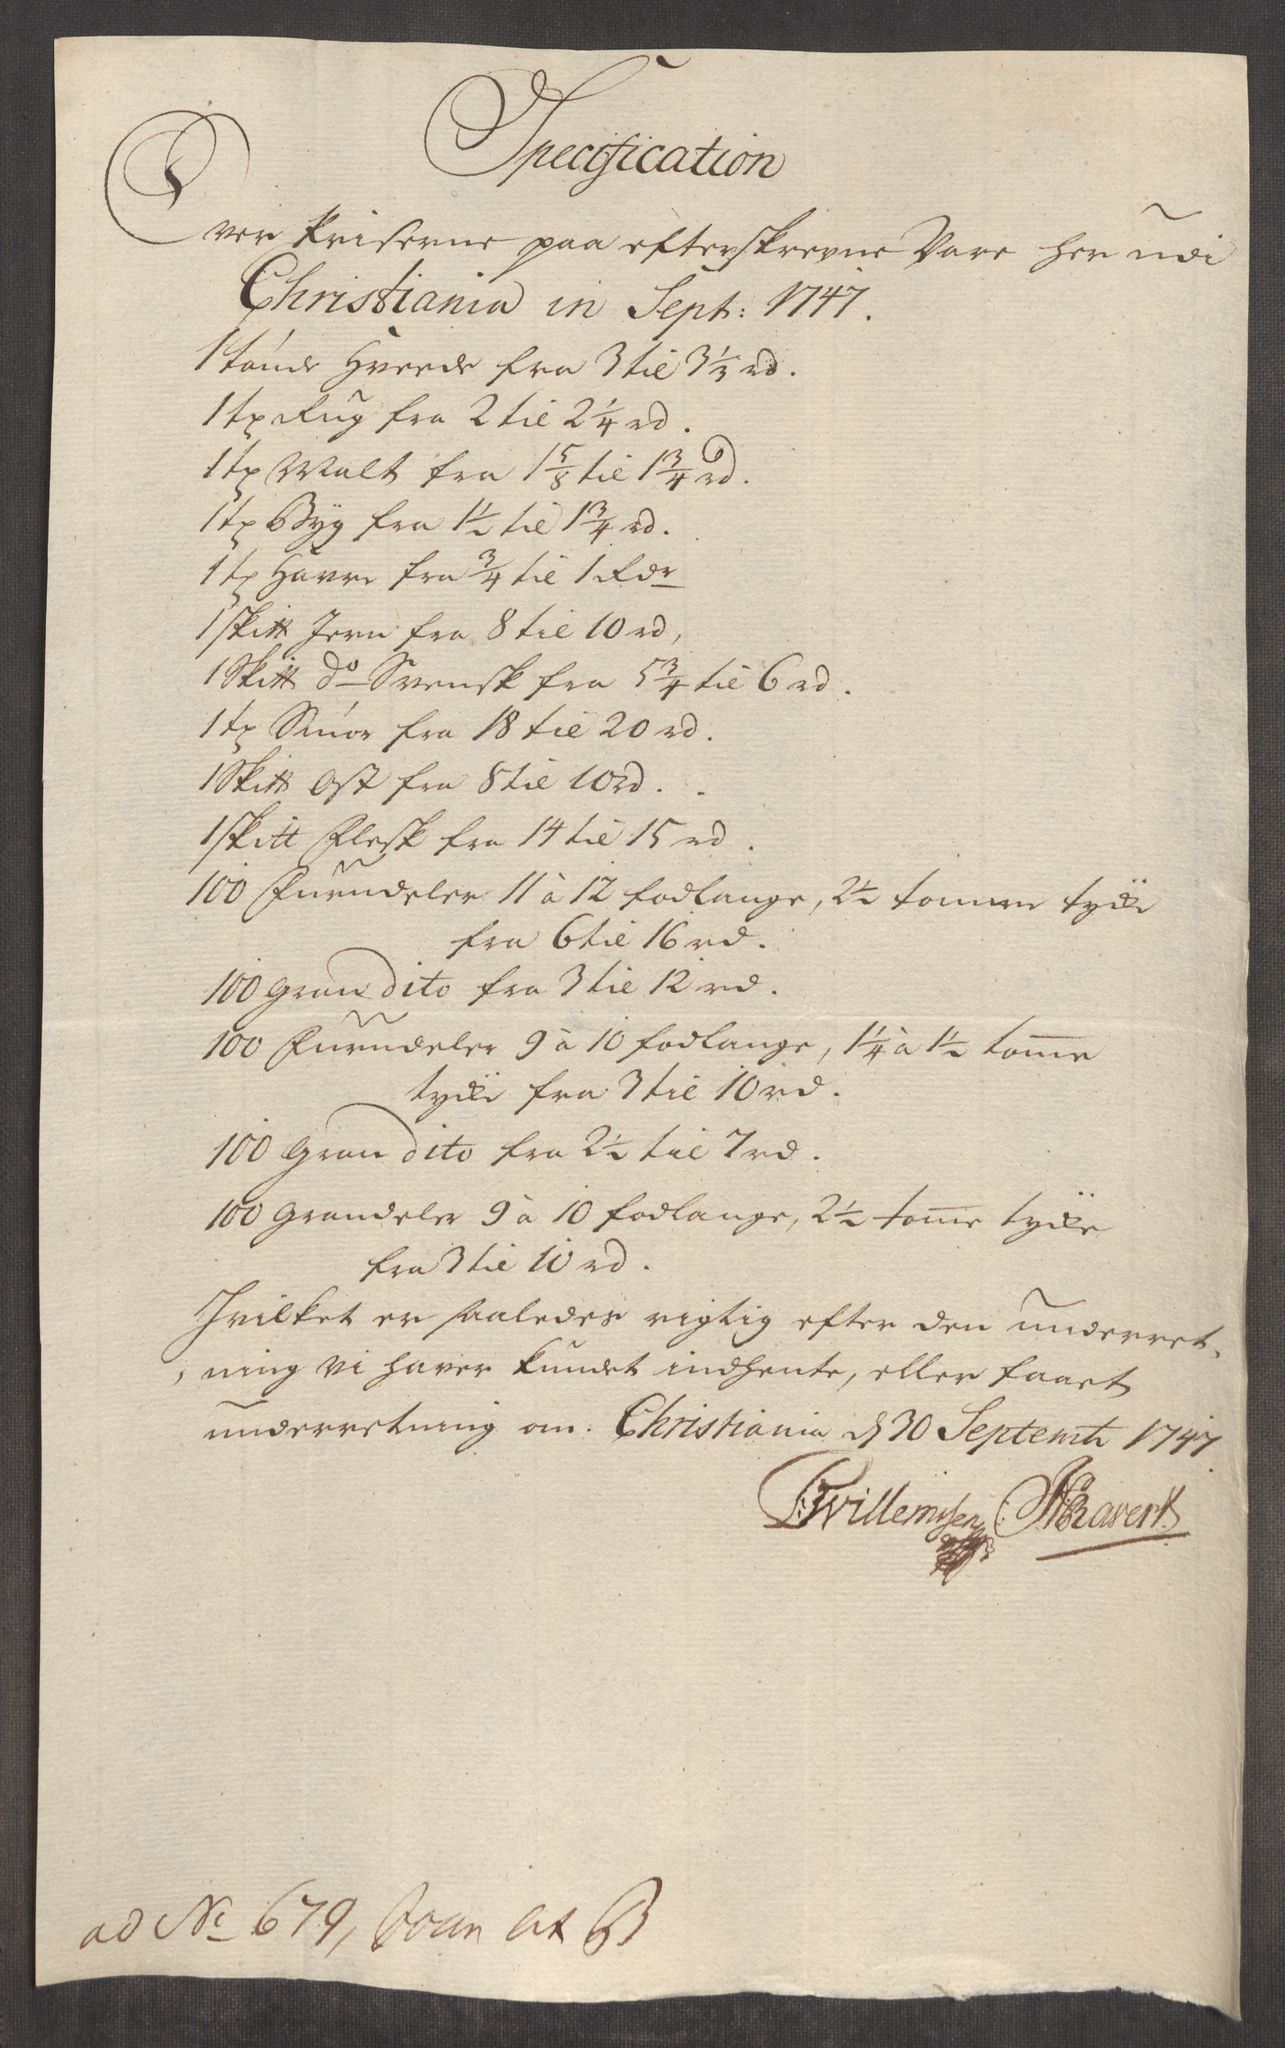 Specification
Over Priserne paa efterskrevne Vare her udi
Christiania in Sept: 1747.
1 tønde Hveede fra 3 til 3⅓ rd.
1 tr Rug fra 2 til 2¼ rd.
1 tr Malt fra 1⅝ til 1¾ rd.
1 tr Byg fra 1½ til 1¾ rd.
1 tr Havre fra ¾ til 1 Rdr
1 sk℔ Jern fra 8 til 10 rd,
1 Sk℔ do Svensk fra 5¾ til 6 rd.
1 tr Smør fra 18 til 20 rd.
1 Sk℔ Ost fra 8 til 10 rd.
1 sk℔ Flesk fra 14 til 15 rd.
100 Furudeler 11 à 12 fodlange, 2½ tomme tycke
fra 6 til 16 rd.
100 Gran dito fra 3 til 12 rd.
100 Furudeler 9 à 10 fodlange, 1¼ à 1½ tomme
tycke fra 3 til 10 rd.
100 Gran dito fra 2½ til 7 rd.
100 Grandeler 9 à 10 fodlange, 2½ tomme tycke
fra 3 til 10 rd.
Hvilket er saaledes rigtig efter den underret-
ning vi haver kundet indhente, eller faaet
underretning om. Christiania d 30 Septembr 1747.
Willemsen Ravert
ad No 679, Lit B